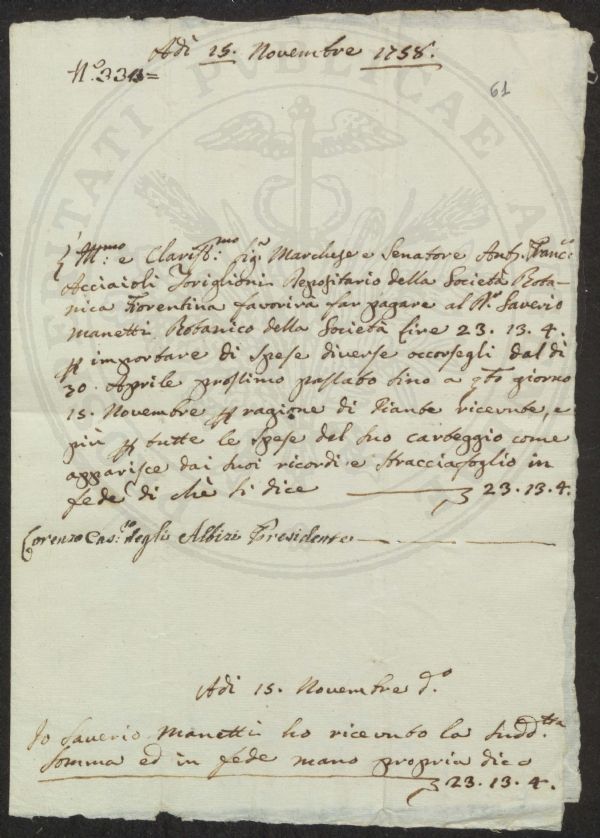 Adì 15. Novembre 1758.
N.° 333=
61
Ill.mo e Clariss.mo Sig.r Marchese e Senatore Ant.° Franc.°
Acciaioli Toriglioni Depositario della Società Bota-
nica Fiorentina favorirà far pagare al D.r Saverio
Manetti Botanico della Società Lire 23. 13. 4.
p importare di spese diverse occorsegli dal dì
30. Aprile prossimo passato sino a q.to giorno
15. Novembre p ragione di Piante ricevute, e
più p tutte le spese del suo carteggio come
apparisce dai suoi ricordi e stracciafoglio in
fede di che si dice 23. 13. 4.
Lorenzo Gas.° degli Albizi Presidente
Adì 15. Novembre d.°
Io Saverio Manetti ho ricevuto la sudd.tta
somma ed in fede mano propria dico
23. 13. 4.